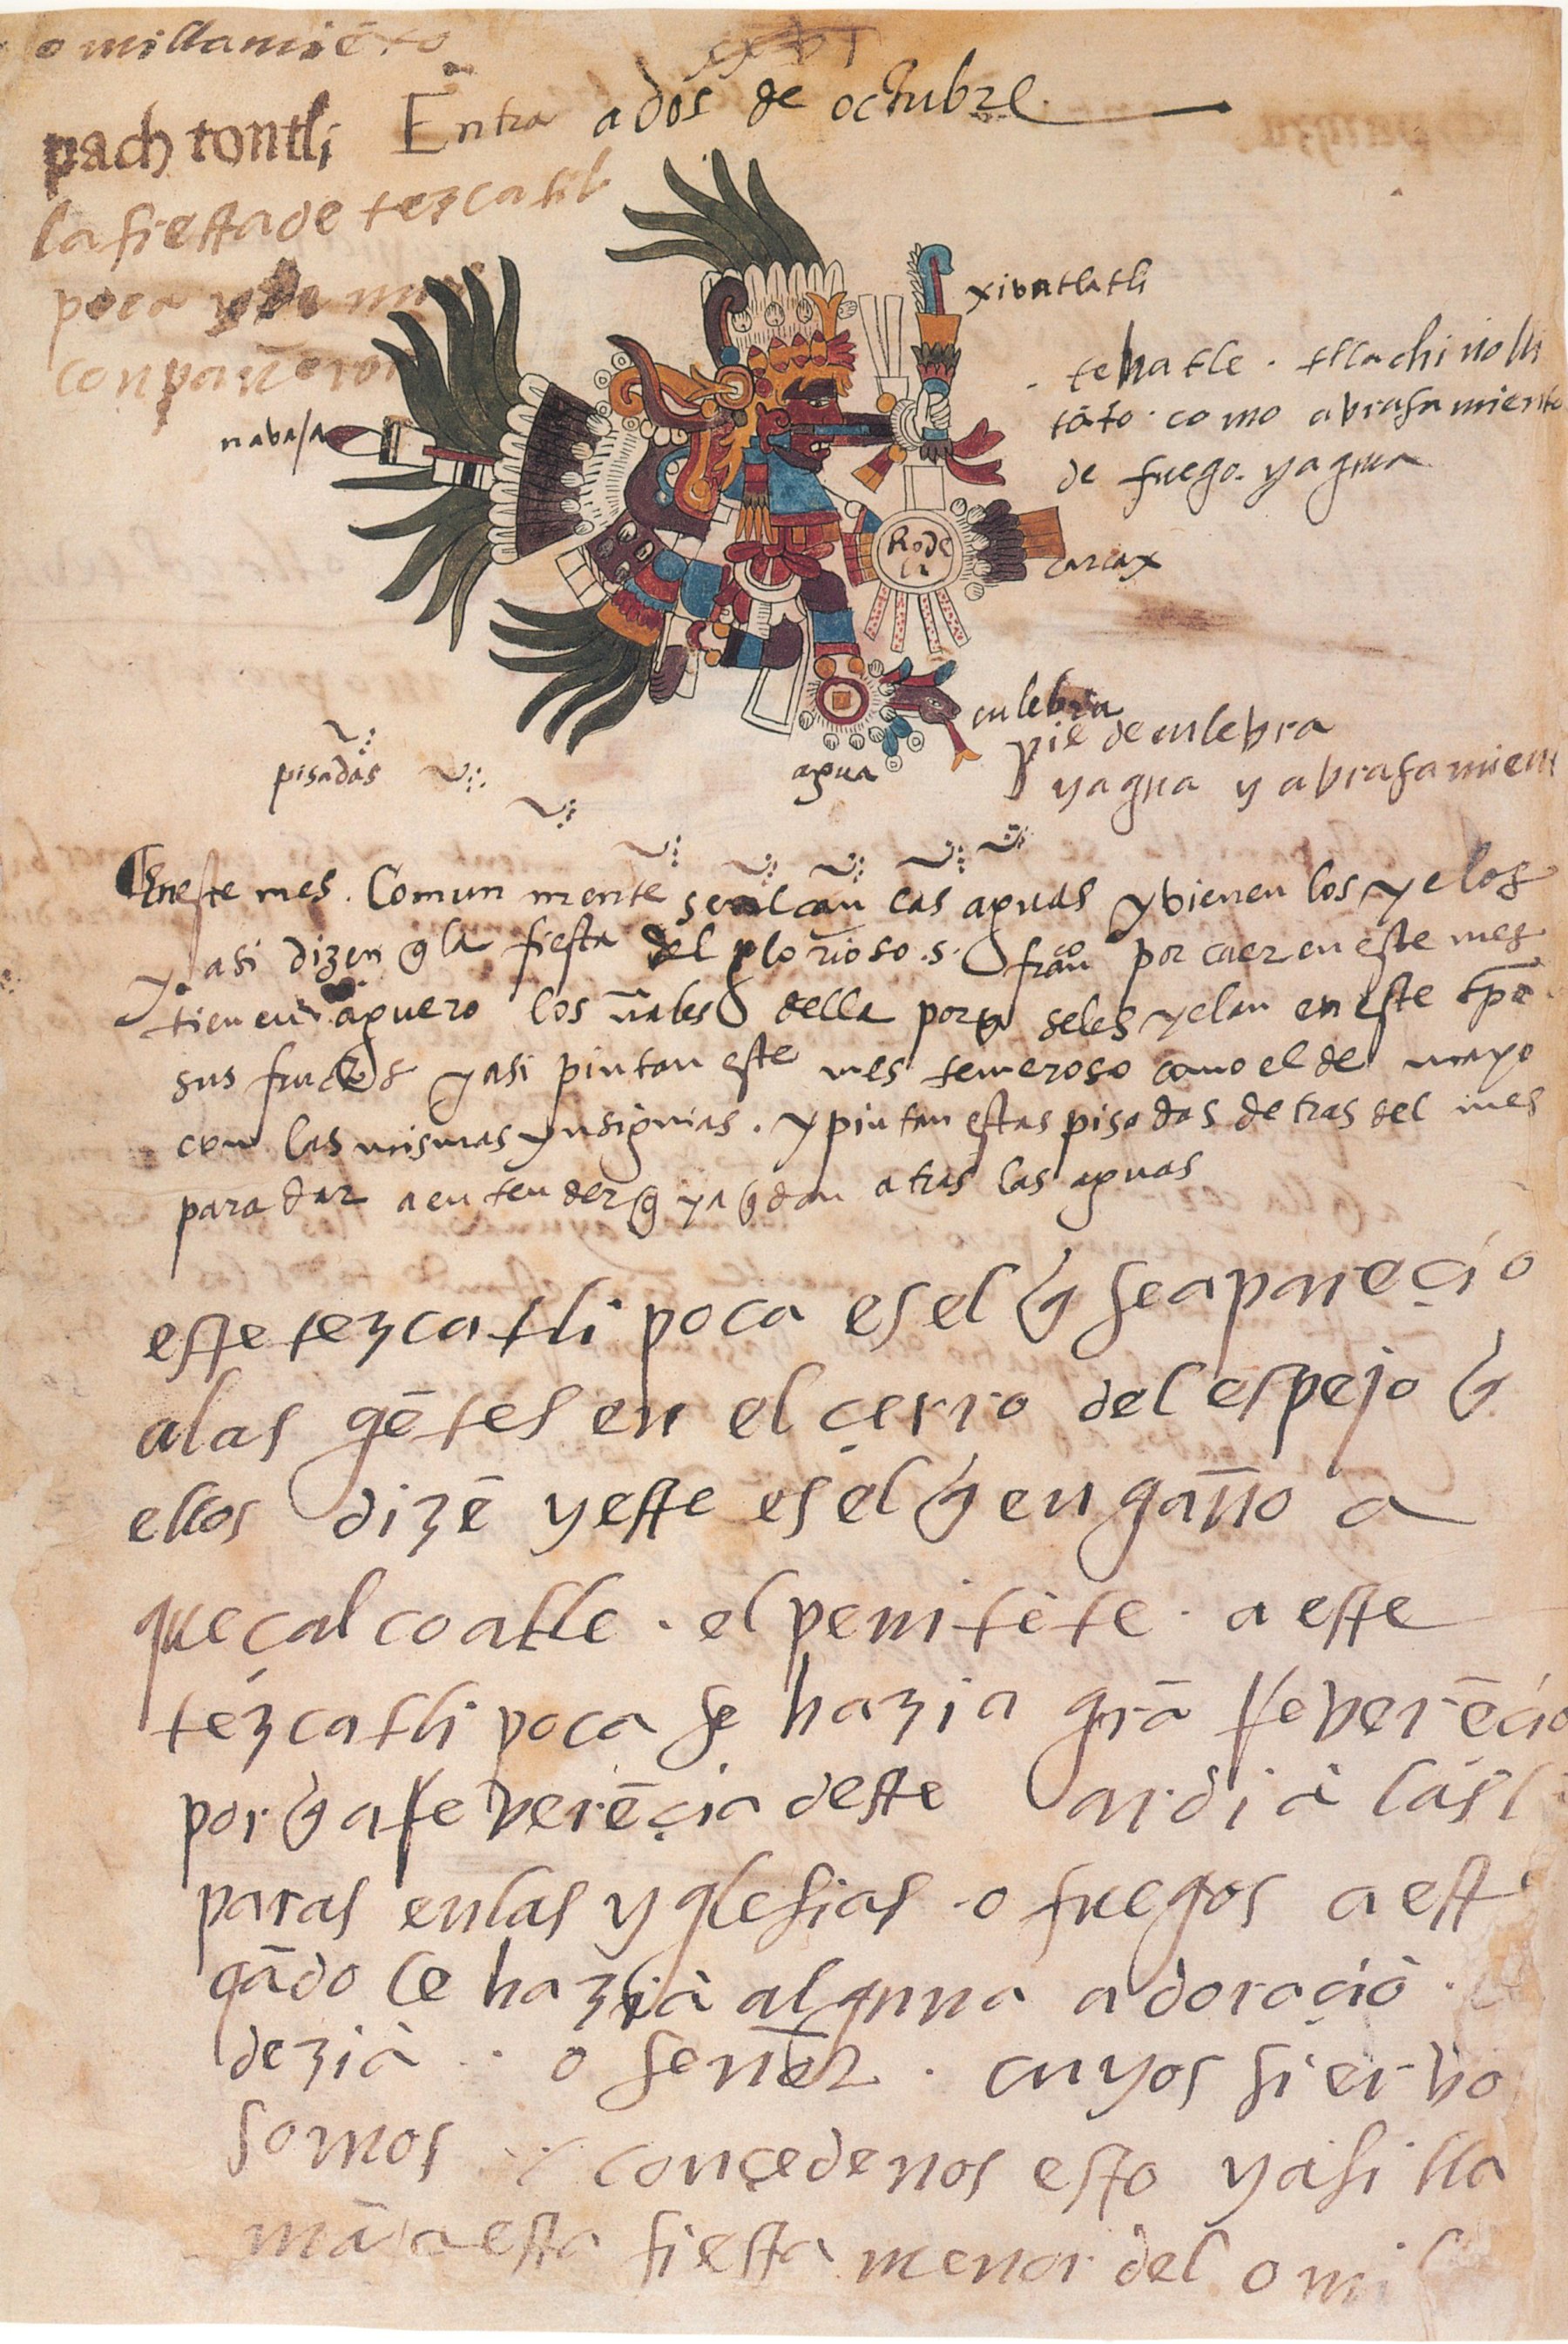 omillamiēto
pach tontli Entra ados de octubre
la fiesta de tezcatil
poca
conpañeron
xiuatlatli
. tehuatle . tlachinolli
tāto . como abrasamiento
de fuego . y agua
nabaja
Rode
la
carcax
culebra
pie de culebra
y agua y abrasamien
agua
pisadas
En este mes . Comun mente se alcan las aguas y vienen los yelos
y asi dizen q̃ la fiesta del glorioso .s. frāco por caer en este mes
tienen aguero los ñales della porq̃ seles yelan en este tp̄o
sus frutos y asi pintan este mes temeroso como el de mayo
con las mismas ynsignias . y pintan estas pisadas detras del mes
para dar a entender q̃ ya q̃dan atras las aguas
este tezcatli poca es el q̃ se apareçio
alas gētes en el çerro del espejo q̃
ellos dizē y este es el q̃ engaño a
queçalcoatle . el penitēte . a este
tezcatli poca se hazia grā reverēcia
por q̃ a reverēçia deste ardiā las lā
paras en las yglesias . o fuegos a est
qādo le haziā alguna adoraçiō .
deziā . . o señor . cuyos siervo
somos conçedenos esto y asi lla
mā a esta fiesta menor del omil